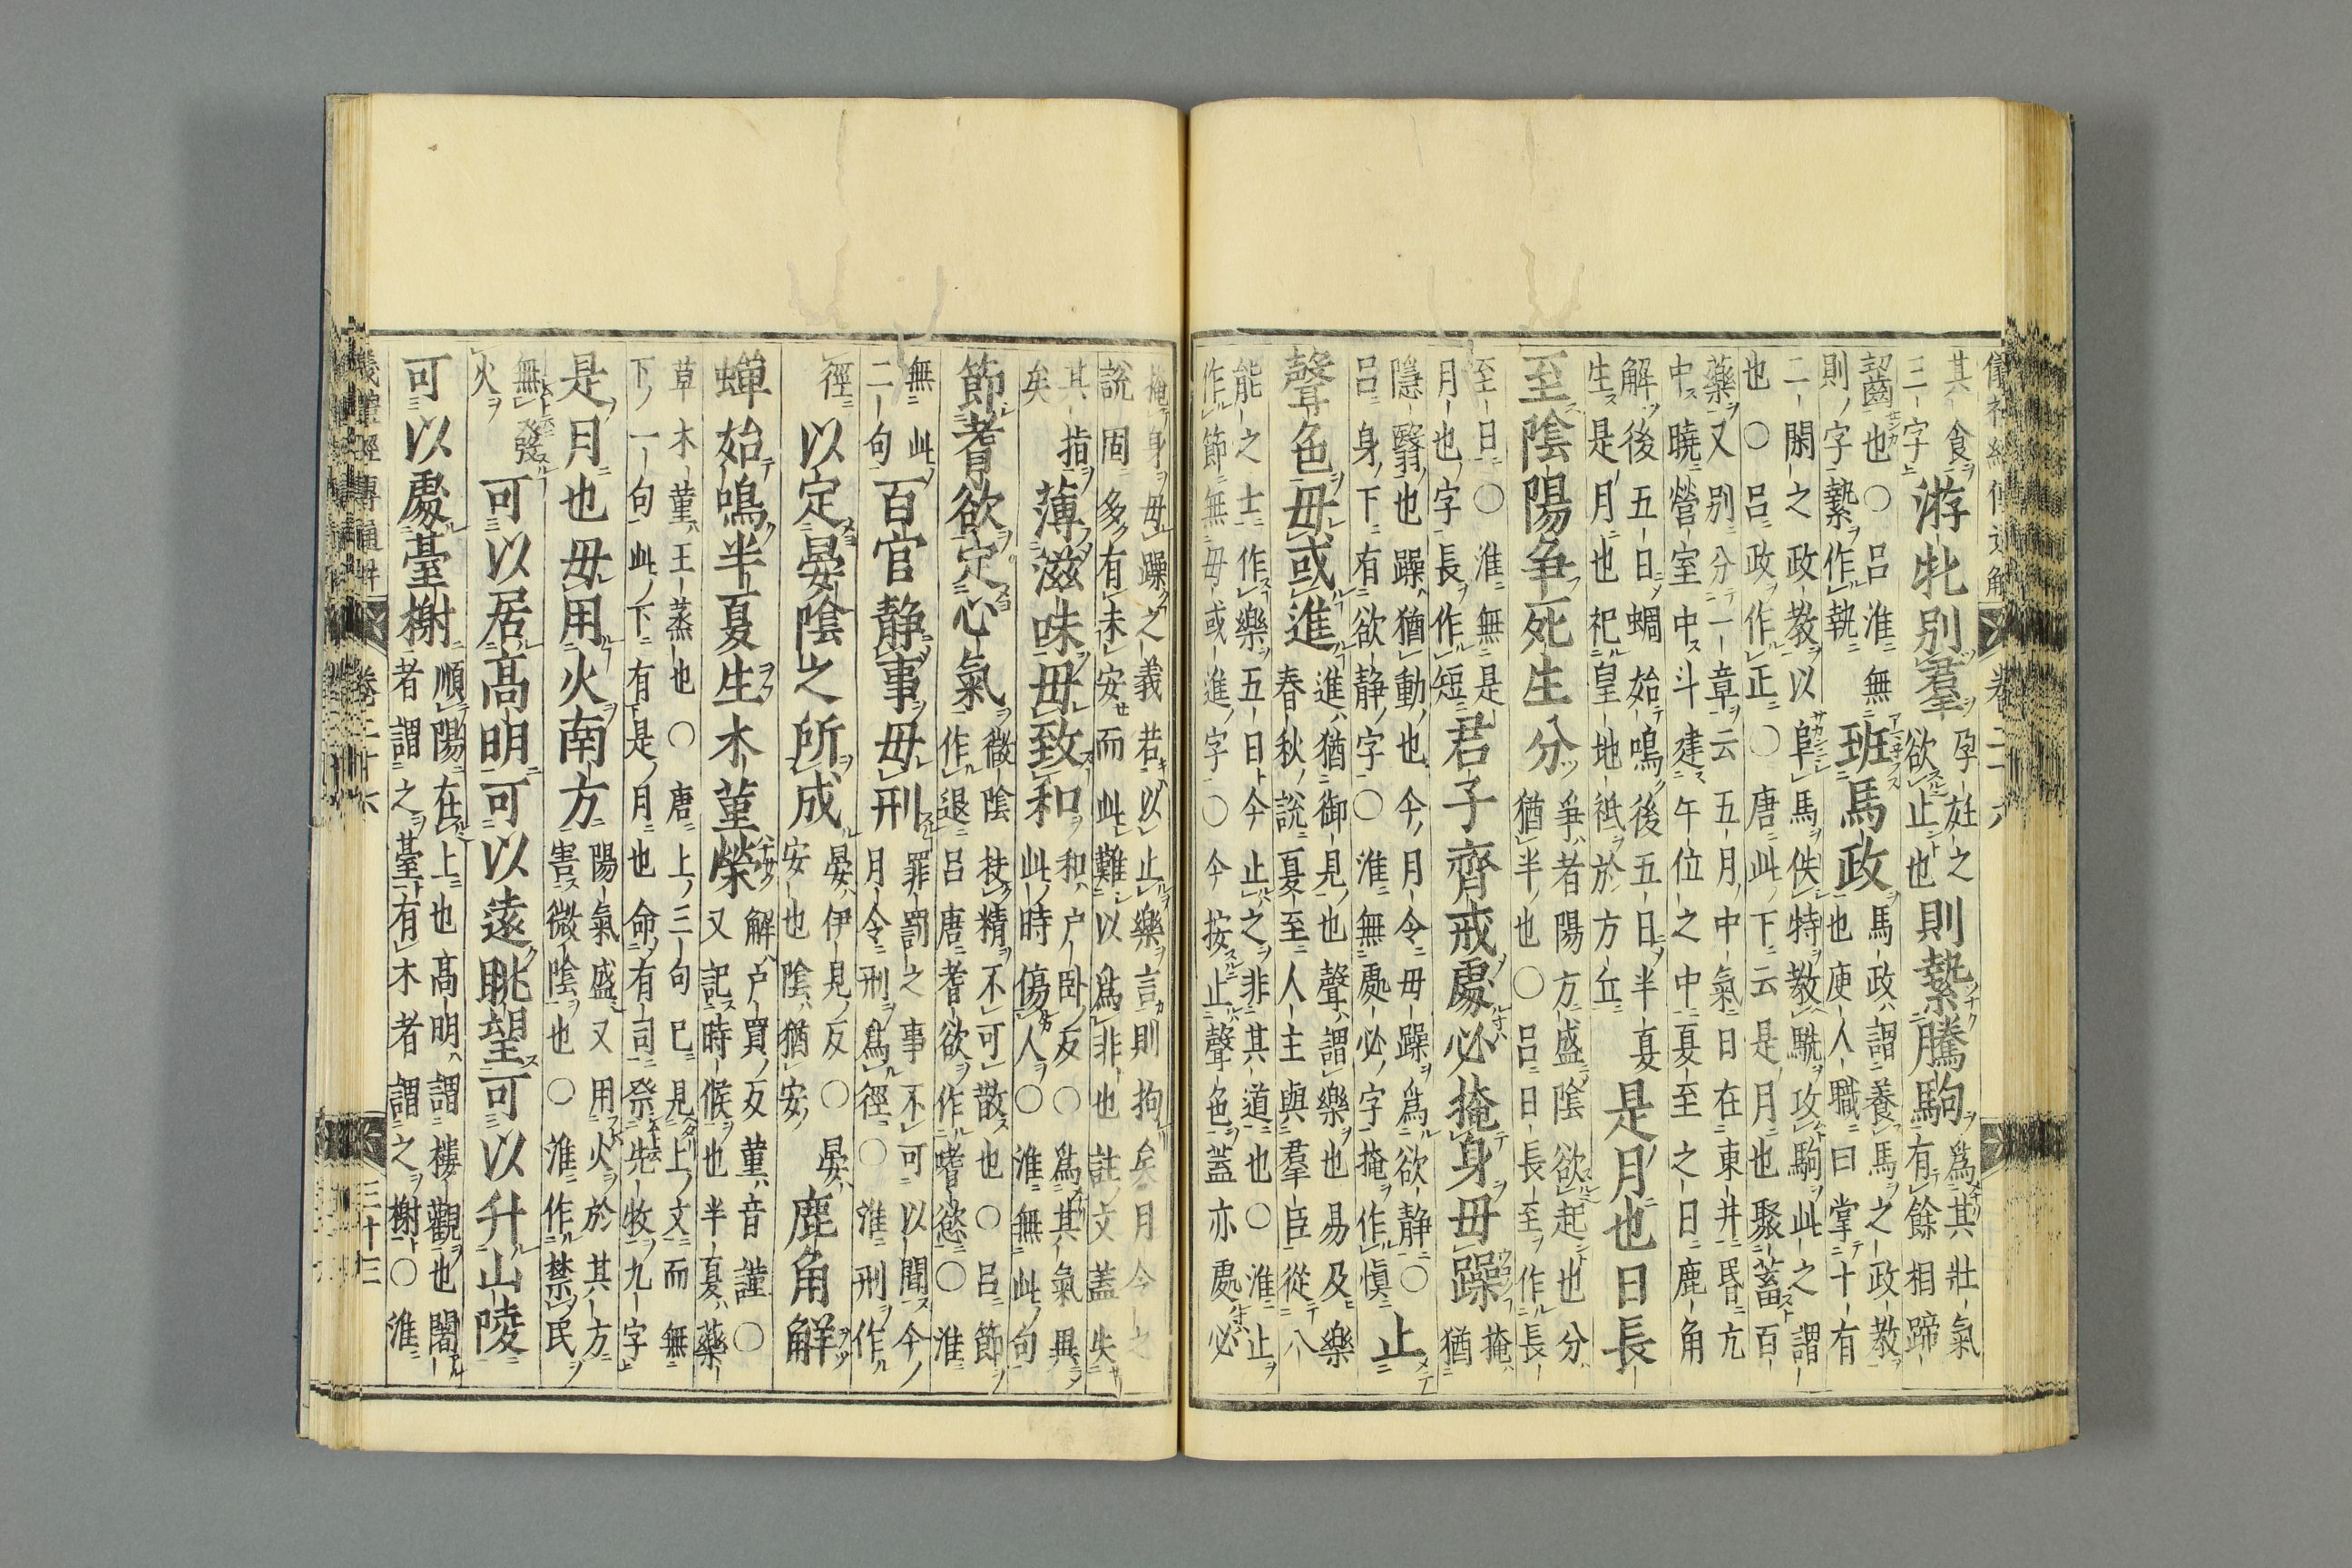 儀禮經傳通解 卷二十六
其食三字 游牝別羣 孕妊之欲止也 則縶騰駒 爲其壯氣有餘相蹄
齧也○呂淮無則字縶作執 班馬政 馬政謂養馬之政教也庾人職曰掌十有
二閑之政教以阜馬佚特教駣攻駒此之謂也○呂政作正○唐此下云是月也聚蓄百
藥又別分一章云五月中氣日在東井昏亢中曉營室中斗建午位之中夏至之日鹿角
解後五日蜩始鳴後五日半夏生是月也祀皇地祇於方丘 是月也日長
至陰陽争死生分 爭者陽方盛陰欲起也分猶半也○呂日長至作長
至日○淮無是月也字長作短 君子齊戒處必掩身毋躁 掩猶
隱翳也躁猶動也今月令毋躁爲欲静○呂身下有欲静字○淮無處必字掩作慎 止
聲色毋或進 進猶御見也聲謂樂也易及樂春秋説夏至人主與羣臣從八
能之士作樂五日今止之非其道也○淮止作節無毋或進字○今按止聲色蓋亦處必
掩身毋躁之義若以止樂言則拘矣月令之説固多有未安而此難以爲非也註文蓋失
其指矣 薄滋味毋致和 和户卧反○爲其氣異此時傷人○淮無此句
節耆欲定心氣 微陰扶精不可散也○呂節作退呂唐耆欲作嗜慾○淮
無此二句 百官静事毋刑 罪罰之事不可以聞今月令刑爲徑○淮刑作
徑 以定晏陰之所成 晏伊見反○晏安也陰猶安 鹿角解
蟬始鳴半夏生木菫榮 解户買反菫音謹○又記時候也半夏藥
草木菫王蒸也○唐上三句已見上文而無下一句此下有是月也命有司祭先牧九字
是月也毋用火南方 陽氣盛又用火於其方害微陰也○淮作禁民
無發火 可以居高明可以遠眺望可以升山陵
可以處臺榭 順陽在上也高明謂樓觀也闍者謂之臺有木者謂之榭○淮
儀禮經傳通解 卷二十六 三十三